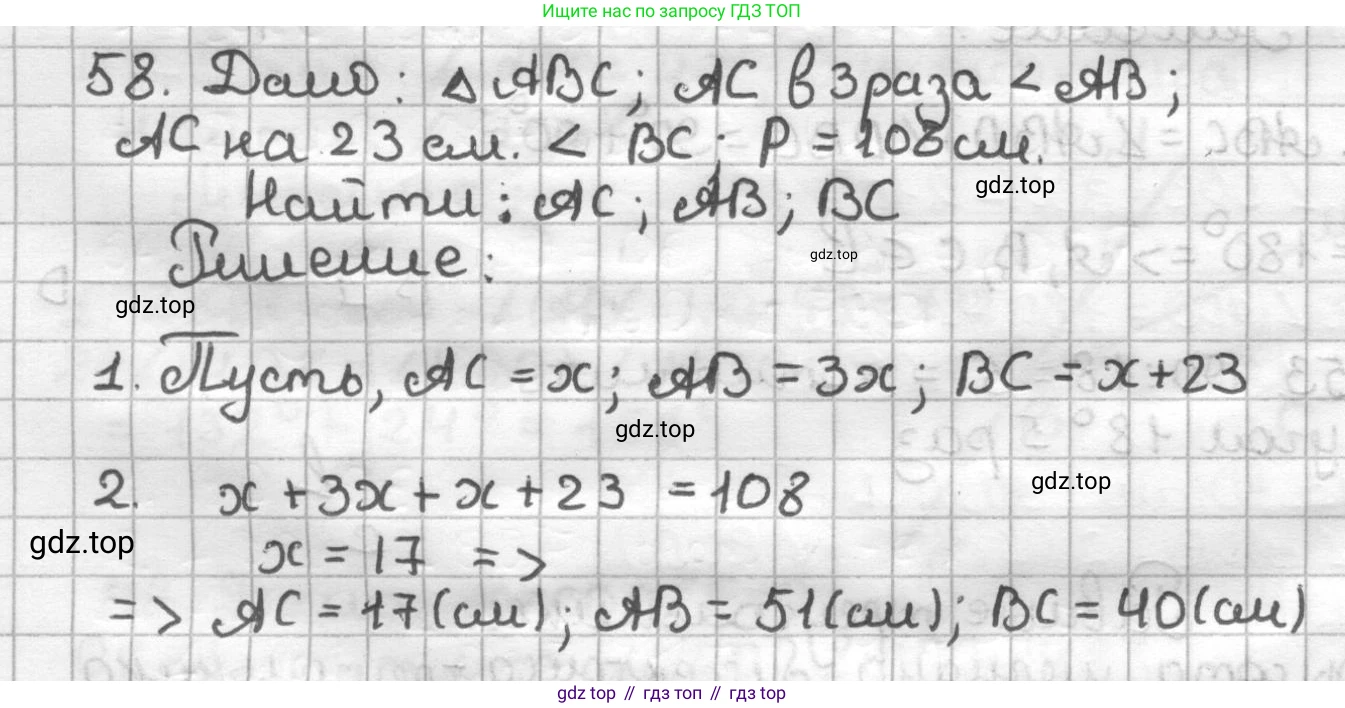 Ищите нас по запросу ГДЗ ТОП
58. Дано: △ ABC; AC в 3 раза < AB;
AC на 23 см. < BC; P = 108 см.
gdz.top
Найти: AC; AB; BC
Решение:
gdz.top
gdz.top
1. Пусть, AC = x; AB = 3x; BC = x+23
gdz.top
gdz.top
2. x + 3x + x + 23 = 108
gdz.top
x = 17 =>
=> AC = 17(см); AB = 51(см); BC = 40(см)
gdz top // гдз топ // gdz top